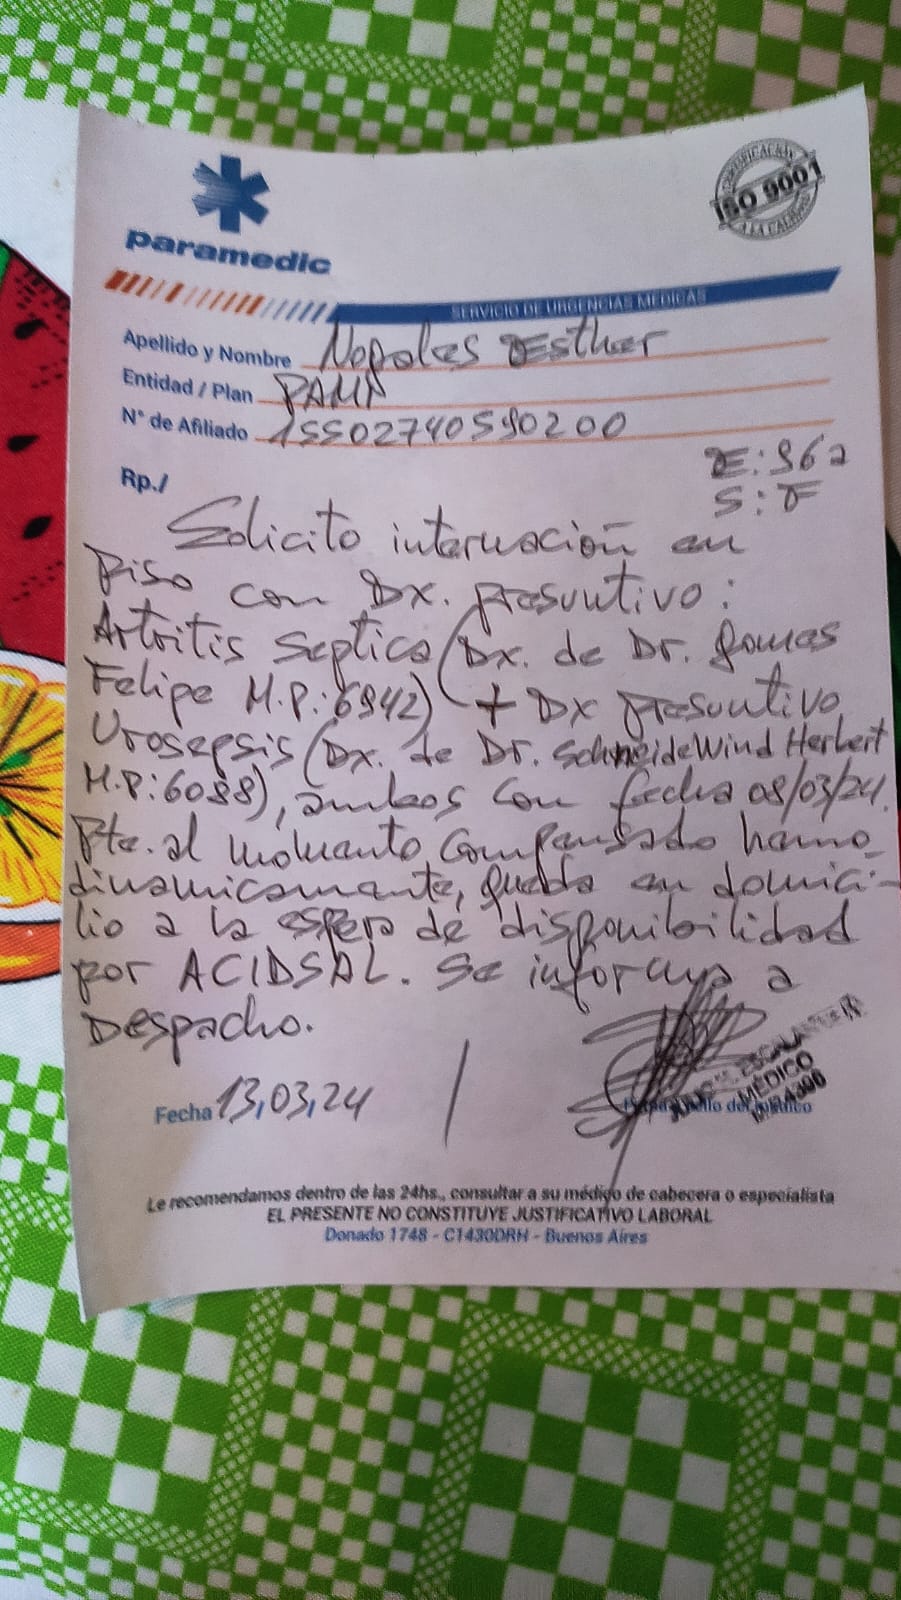 paramedic
CERTIFICACIÓN
ISO 9001
A LA CALIDAD
SERVICIO DE URGENCIAS MÉDICAS
Apellido y Nombre Nopoles Esther
Entidad / Plan PAMI
N° de Afiliado 15502740590200
E: 962
S: F
Rp./
Solicito internación en
Piso con Dx. presuntivo:
Artritis Septica (Dx. de Dr. Gomes
Felipe M.P.: 6942) + Dx presuntivo
Urosepsis (Dx. de Dr. SchneideWind Herbert
M.P: 6088), ambos con fecha 08/03/24.
Pte. al momento compensado hemo_
dinamicamente, queda en domici-
lio a la espera de disponibilidad
por ACIDSAL. Se informa a
Despacho.
ESCALANTE
MÉDICO
Fecha 13,03,24
Le recomendamos dentro de las 24hs., consultar a su médico de cabecera o especialista
EL PRESENTE NO CONSTITUYE JUSTIFICATIVO LABORAL
Donado 1748 - C1430DRH - Buenos Aires